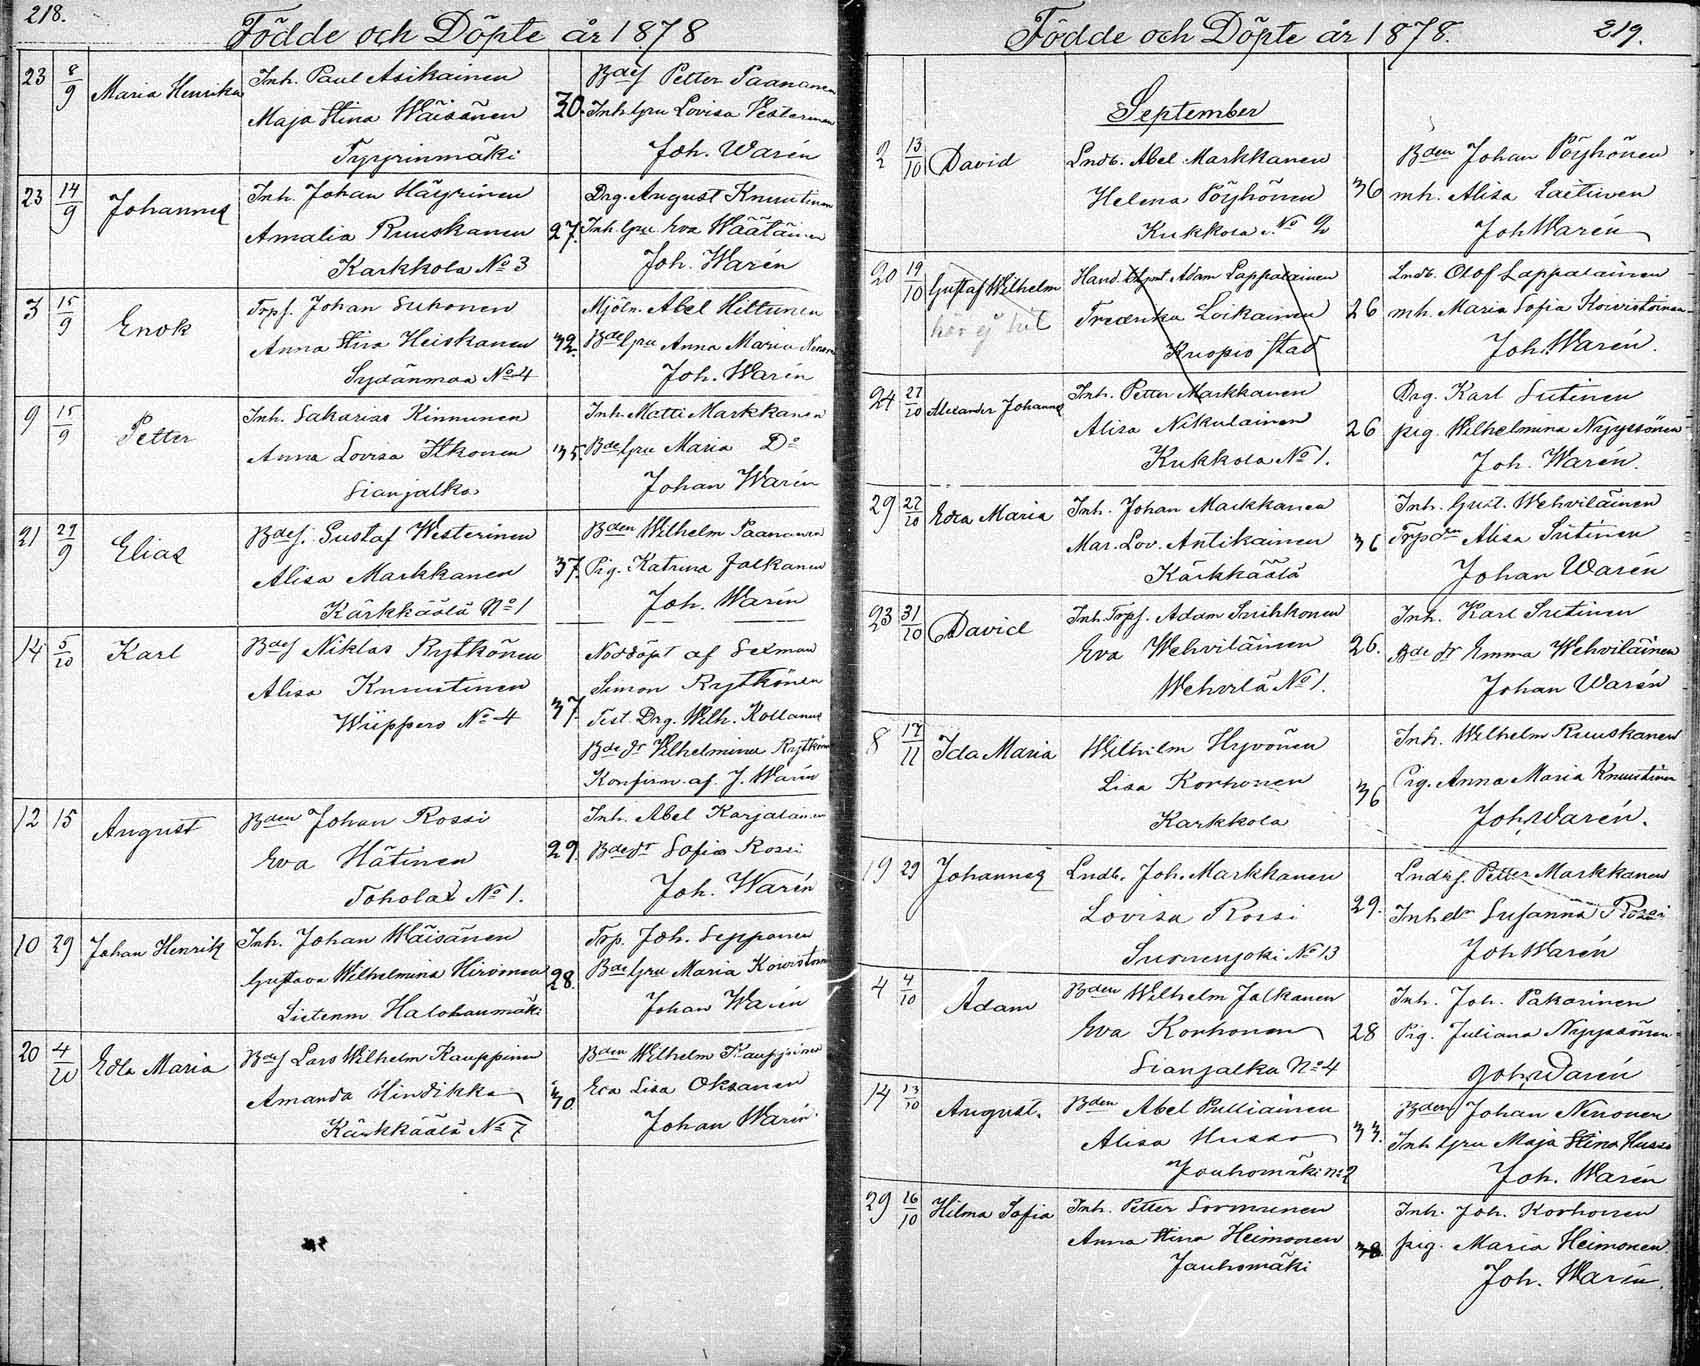 218.
Födde och Döpte år 1878
23 8/9 Maria Henrika Inh. Paul Asikainen 30. Bdes Petter Paananen
Maja Stina Wäisänen Inh. gru Lovisa Vesterinen
Tyyrinmäki Joh. Warén
23 14/9 Johannes Inh. Johan Häyrinen 27. Drg. August Knuutinen
Amalia Ruuskanen Inh. gru Eva Wäätäinen
Karkkola No 3 Joh. Warén
3 15/9 Enok Torps. Johan Suhonen 32. Mjöln. Abel Hiltunen
Anna Stina Heiskanen Bde gru Anna Maria
Sydänmaa No 4 Joh. Warén
9 15/9 Petter Inh. Sakarias Kinnunen 35. Inh. Matti Markkanen
Anna Lovisa Itkonen Bde gru Maria Do
Sianjalka Johan Warén
21 27/9 Elias Bdes. Gustaf Westerinen 37. Bden Wilhelm Paananen
Alisa Markkanen Pig. Katrina Jalkanen
Kärkkäälä No 1 Joh. Warén
14 5/10 Karl Bdes Niklas Rytkönen 37. Nöddöpt af Sexman
Alisa Knuutinen Simon Rytkönen
Wiippero No 4 Test. Drg. Wilh.
Bde dr Wilhelmina Rytkönen
Konfirm. af J. Warén
12 15 August Bden Johan Rossi 29. Inh. Abel Karjalainen
Eva Hätinen Bde dr Sofia Rossi
Toholax No 1. Joh. Warén
10 29 Johan Henrik Inh. Johan Wäisänen 28. Trp. Joh. Sepponen
Gustava Wilhelmina Hirvonen Bde gru Maria Koivistoinen
Halohanmäki Johan Warén
20 4/10 Edla Maria Bdes Lars Wilhelm Kauppinen 40. Bden Wilhelm Kauppinen
Amanda Hindikka Eva Lisa Oksanen
Kärkkäälä No 7 Johan Warén
Födde och Döpte år 1878. 219.
September
2 13/10 David Lndb. Abel Markkanen 36 Bden Johan Pöyhönen
Helena Pöyhönen mh. Alisa Laitinen
Kukkola No 2 Joh Warén
20 19/10 Gustaf Wilhelm Hand. Agent Adam Lappalainen 26 Lndb. Olof Lappalainen
hör ej hit Fredrika Loikainen mh. Maria Sofia Koivistoinen
Kuopio stad Joh. Warén.
24 27/10 Alexander Johannes Inh. Petter Markkanen 26 Drg. Karl Sutinen
Alisa Nikulainen pig. Wilhelmina Nyyssönen
Kukkola No 1. Joh. Warén.
29 27/10 Edla Maria Inh. Johan Markkanen 36 Inh. Gust. Wehviläinen
Mar. Lov. Antikainen Alisa Sutinen
Kärkkäälä Johan Warén
23 31/10 David Inh. Torps. Adam Suihkonen 26. Inh. Karl Sutinen
Eva Wehviläinen Bde dr Emma Wehviläinen
Wehvilä No 1. Johan Warén
8 17/11 Ida Maria Wilhelm Hyvönen 36 Inh. Wilhelm Ruuskanen
Lisa Korhonen Pig. Anna Maria Knuutinen
Karkkola Joh. Warén.
19 29 Johannes Lndb. Joh. Markkanen 29. Lndbs. Petter Markkanen
Lovisa Rossi Inh dr Susanna Rossi
Suonenjoki No 13 Joh Warén
4 4/10 Adam Bden Wilhelm Jalkanen 28 Inh. Joh. Pakarinen
Eva Korhonen Pig. Juliana Nyyssönen
Sianjalka No 4 Joh. Warén
14 13/10 August. Bden Abel Pulliainen 33. Bden Johan Nenonen
Alisa Husso Inh gru Maja Stina Husso
Jauhomäki No 2 Joh. Warén
29 16/10 Hilma Sofia Inh. Petter Sormunen 38. Inh. Joh. Korhonen
Anna Stina Heimonen pig. Maria Heimonen.
Jauhomäki Joh. Warén.